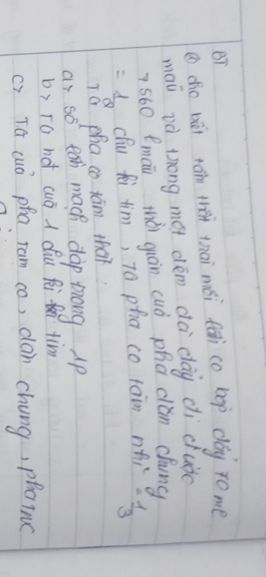 BT
@ cho biết tâm thất trái mỗi lần co bóp đẩy 70 ml
máu và trong một đêm đã đẩy đi được
7560 l máu thời gian của pha dãn chung
= 1/2 chu kì tim, TG pha co tâm nhĩ = 1/3
TG pha co tâm thất.
a, số lần mạch đập trong 1P
b, TG hđ của 1 chu kì tim
c, TG của pha tâm co, dãn chung, pha nc